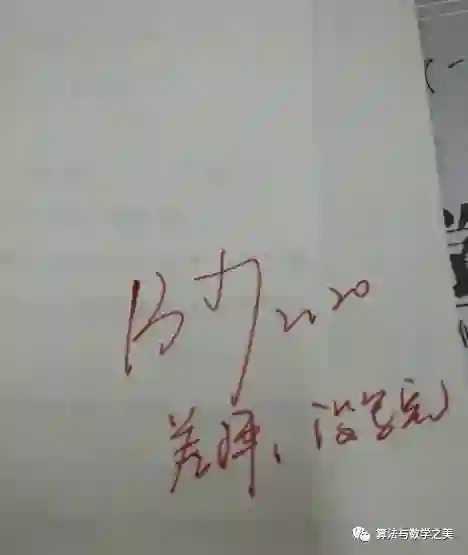 2.20
差评、没写完
算法与数学之美